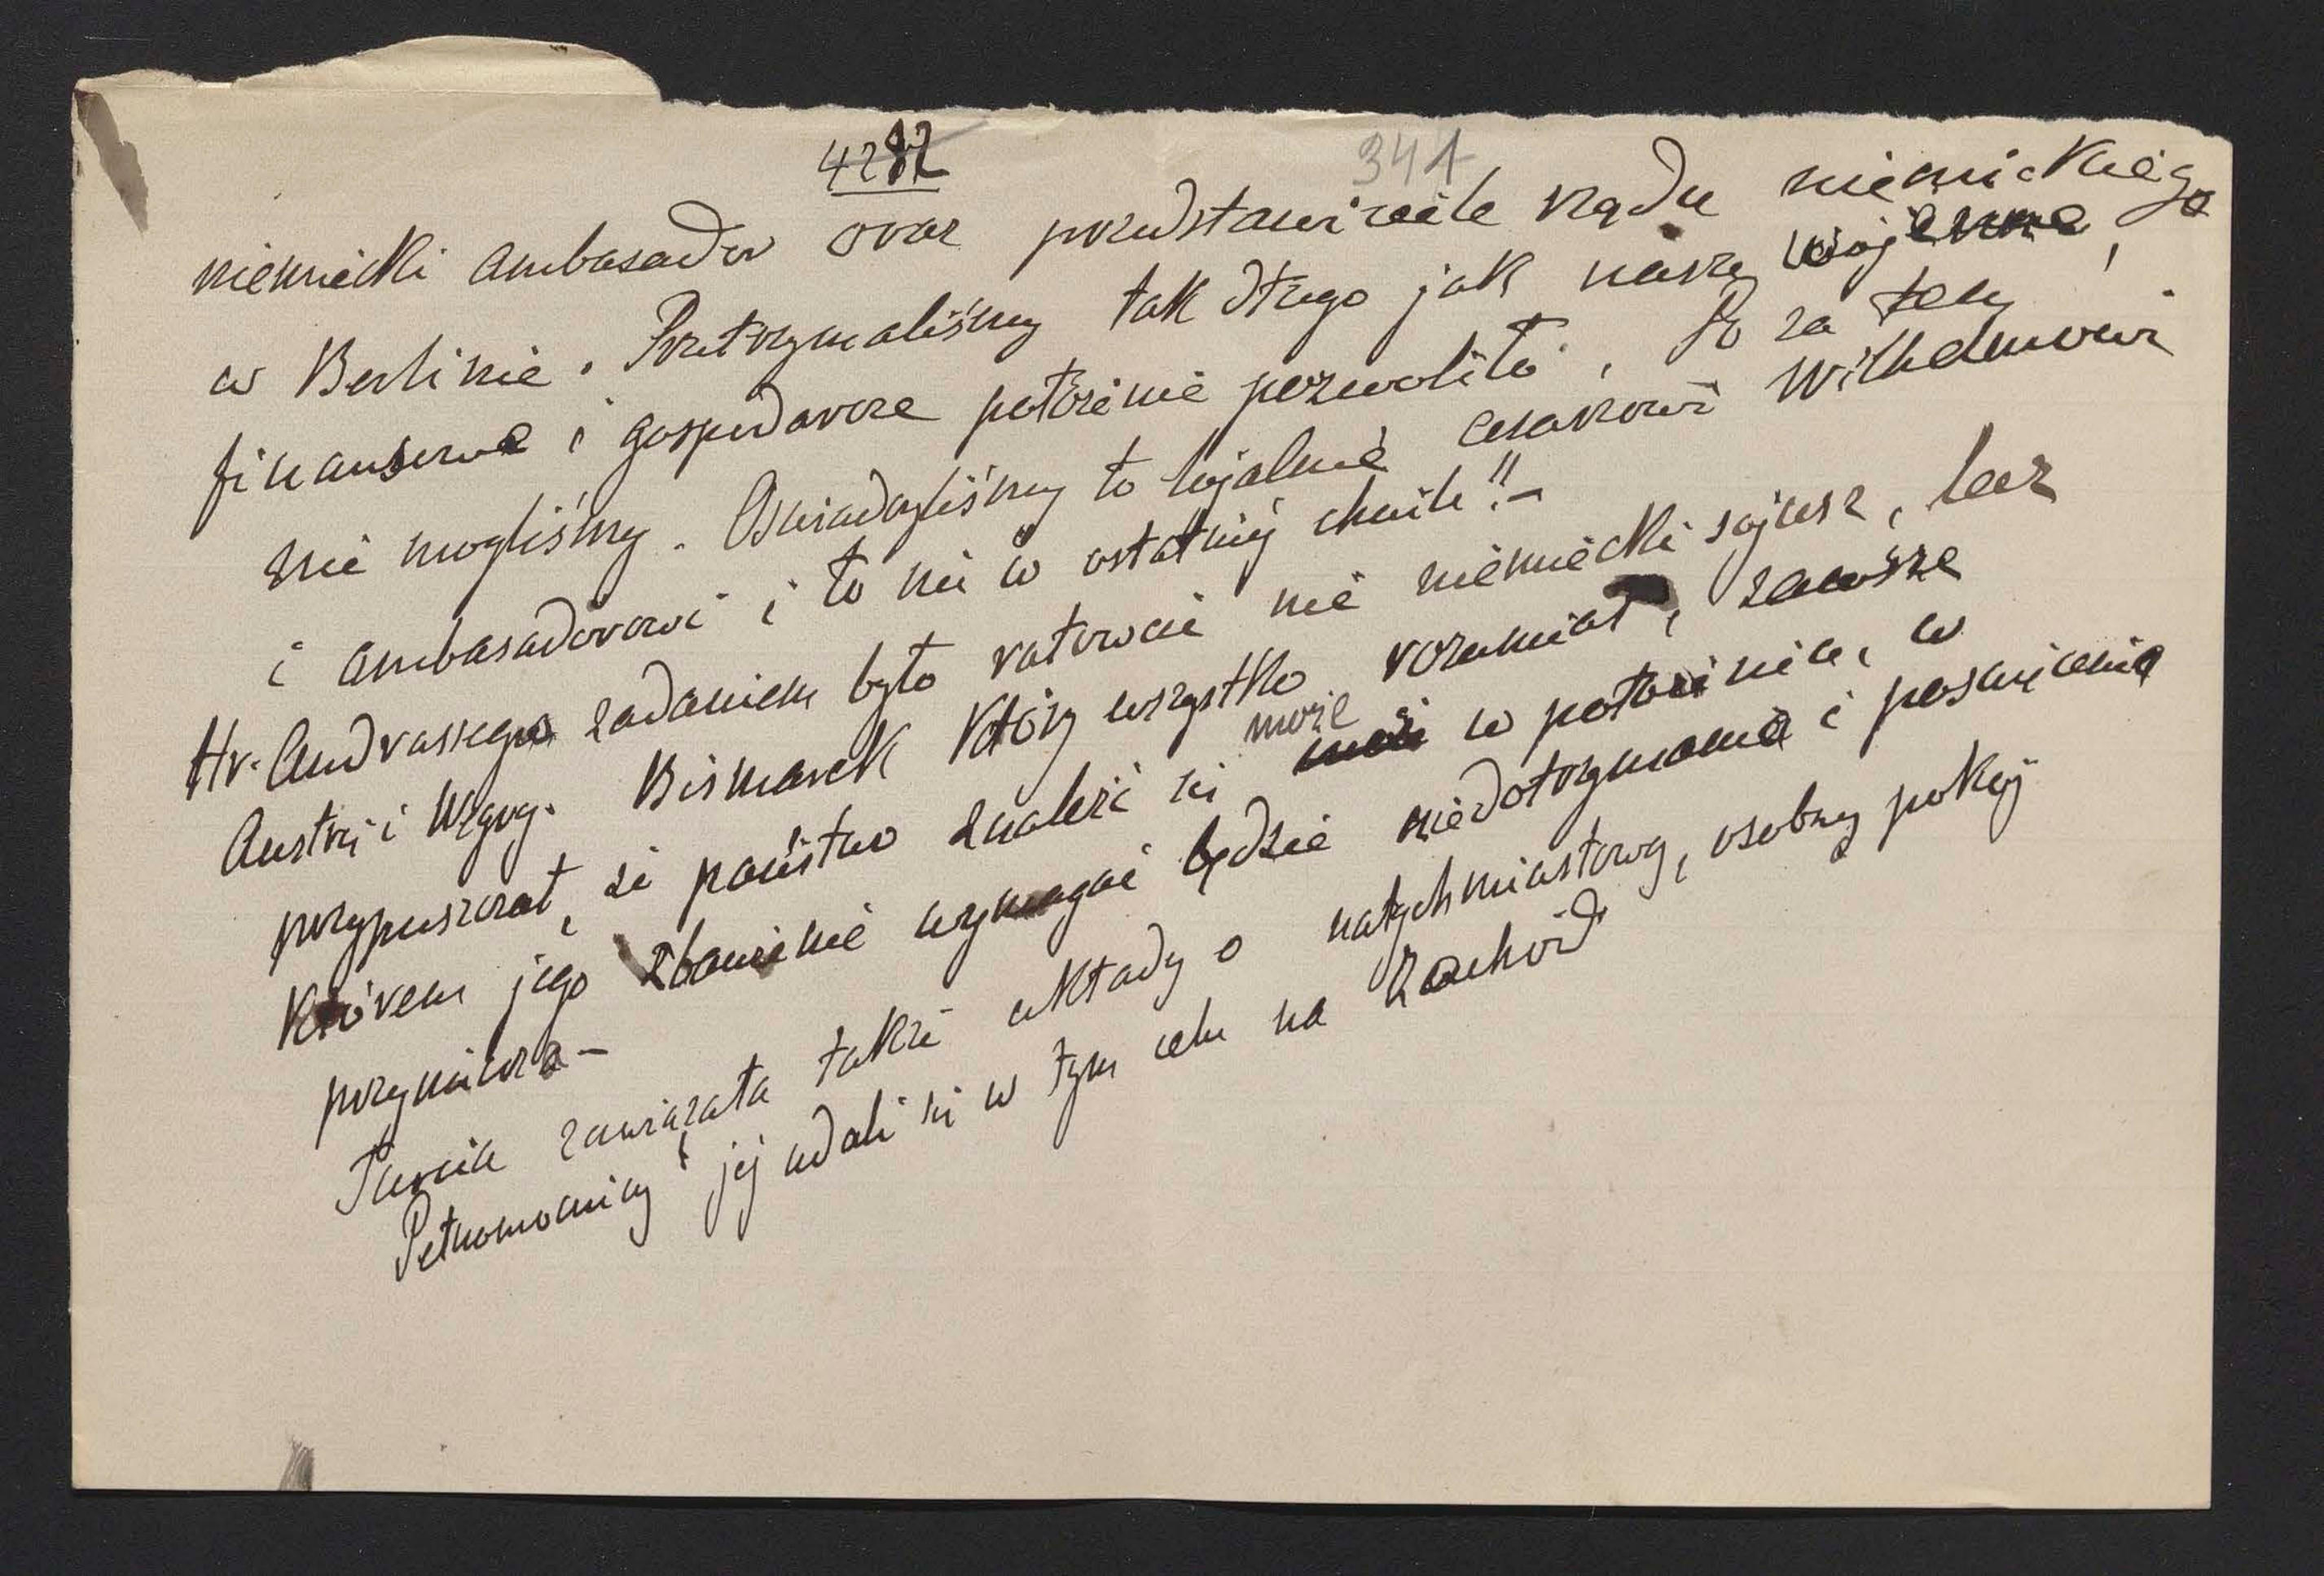 4282
341
niemiecki ambasador oraz przedstawiciele rządu niemieckiego
w Berlinie. Przetrzymaliśmy tak długo jak nasze wojenne,
finansowe i gospodarcze położenie pozwoliło. Po za tem
nie mogliśmy. Oświadczyliśmy to lojalnie cesarzowi Wilhelmowi
i ambasadorowi i to nie w ostatniej chwili!! –
Hr. Andrassego zadaniem było ratować nie niemiecki sojusz, lecz
Austrię i Węgry. Bismarck który wszystko rozumiał, zawsze
przypuszczał, że państwo znaleźć się może w położeniu, w
którem jego zbawienie wymagać będzie niedotrzymania i poświęcenia
przymierza –
Turcia zawiązała także układy o natychmiastowy, osobny pokój
Pełnomocnicy jej udali się w tym celu na Zachód